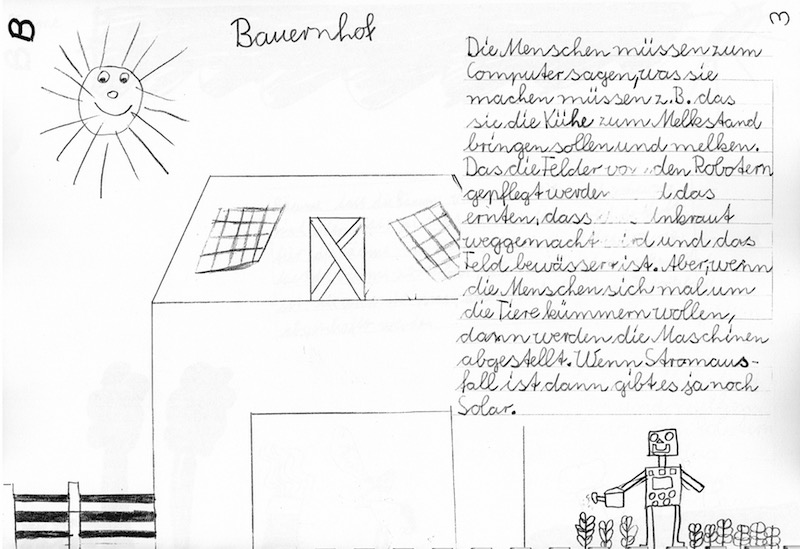 B
Bauernhof
3
Die Menschen müssen zum
Computer sagen, was sie
machen müssen z.B. das
sie die Kühe zum Melkstand
bringen sollen und melken.
Das die Felder den Robotern
gepflegt werden das
ernten, dass
weggemacht und das
Feld bewässert ist. Aber, wenn
die Menschen sich mal um
die Tiere kümmern wollen,
dann werden die Maschinen
abgestellt. Wenn Stromaus-
fall ist dann gibt es ja noch
Solar.